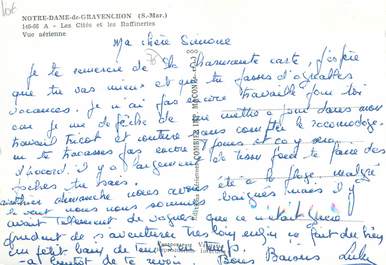 10€
NOTRE-DAME-de-GRAVENCHON (S.-Mar.)
146-66 A - Les Cités et les Raffineries
Vue aérienne
Ma chère Simone
Je te remercie de ta rassurante carte, j'espère
que tu vas mieux et que tu passes d'agréables
vacances. Je n'ai pas encore travaillé pour toi
car je me dépêche de me mettre à jour dans mon
travail tricot et couture sans compter le raccommodage.
ne te tracasses pas encore
d'accord. il y a largement
hier dimanche nous avons été à la plage, malgré
le vent nous nous sommes baignés mais il y
avait tellement de vagues que ce n'était guère
prudent de s'aventurer très loin, enfin ça fait du bien
un petit bain de temps en temps.
à bientôt de te revoir. Bons Baisers Lulu